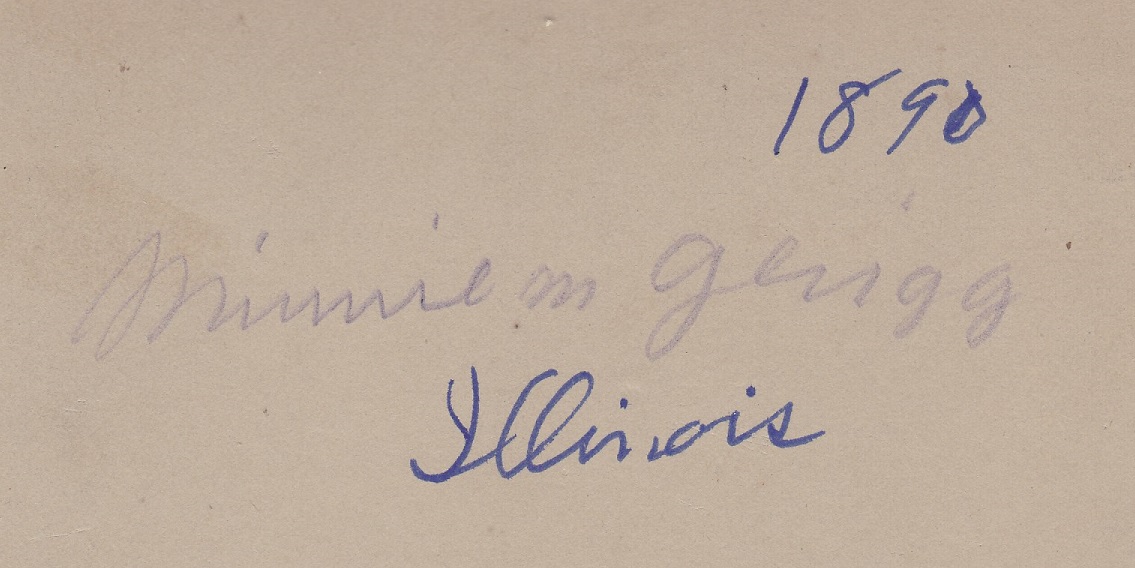 1890
Minnie m Gerigg
Illinois